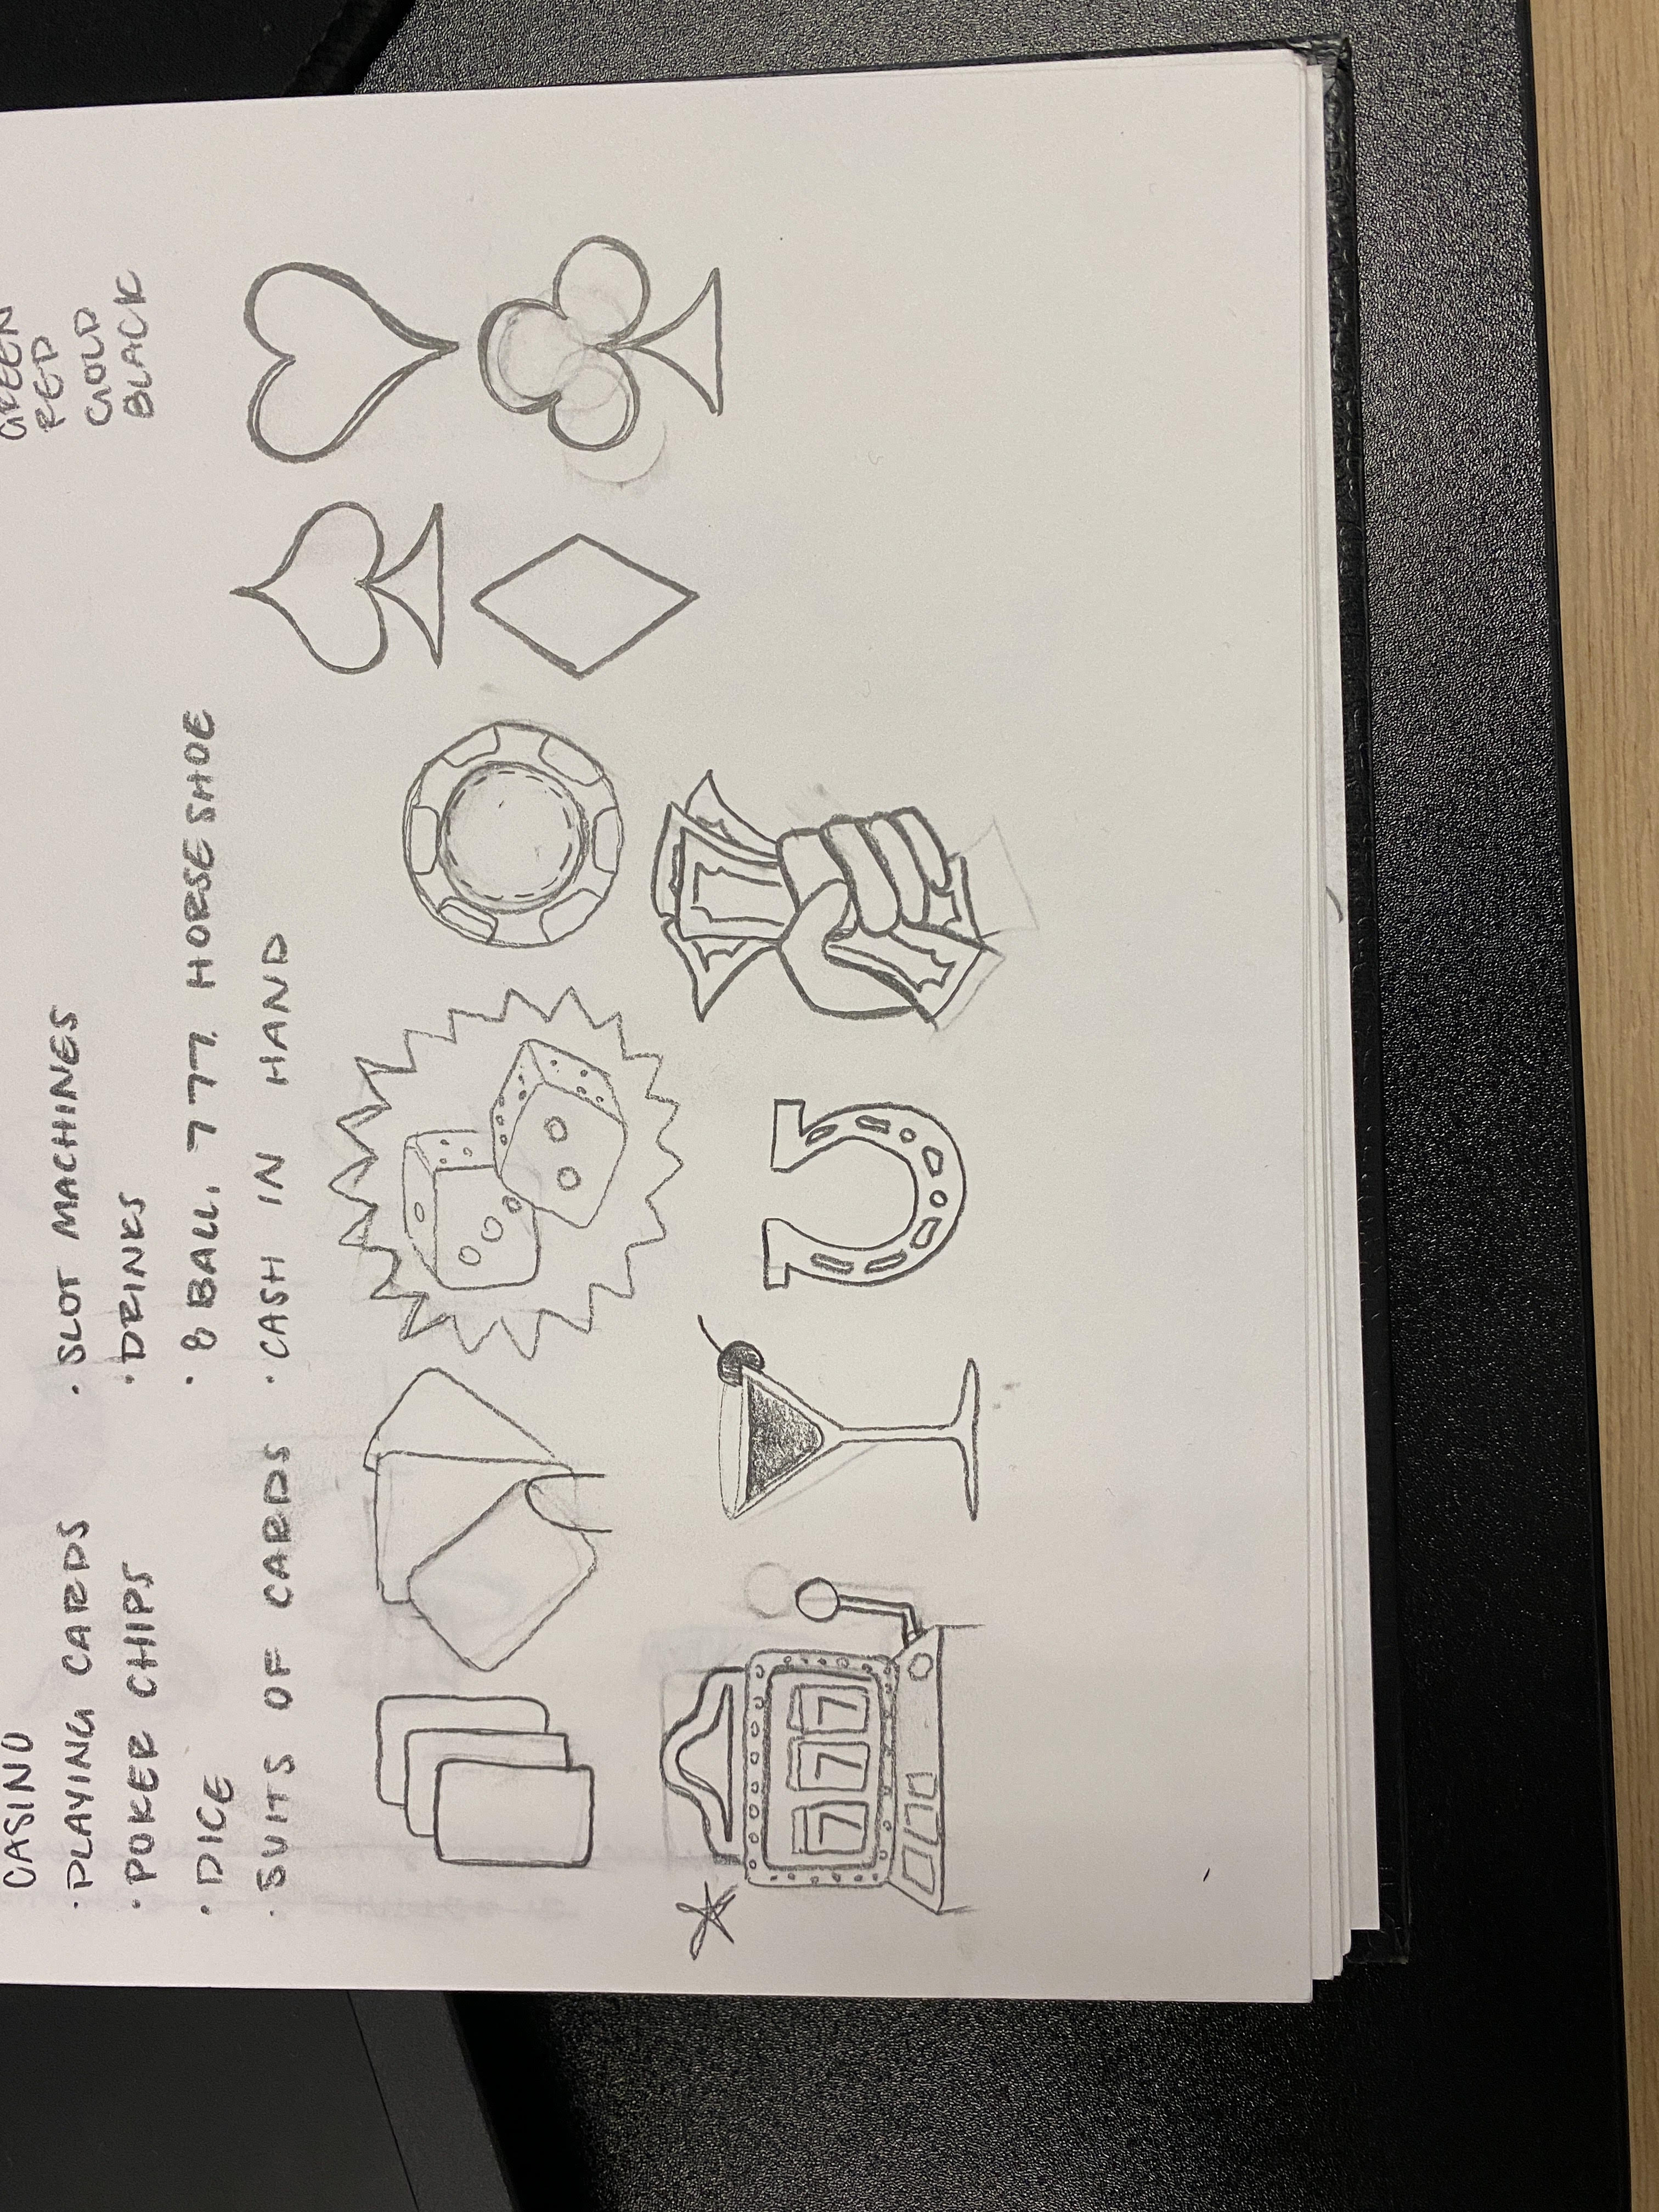 CASINO
• PLAYING CARDS
• POKER CHIPS
• DICE
• SUITS OF CARDS
• SLOT MACHINES
• DRINKS
• 8 BALL, 777, HORSESHOE
• CASH IN HAND
GREEN
RED
GOLD
BLACK
7 7 7